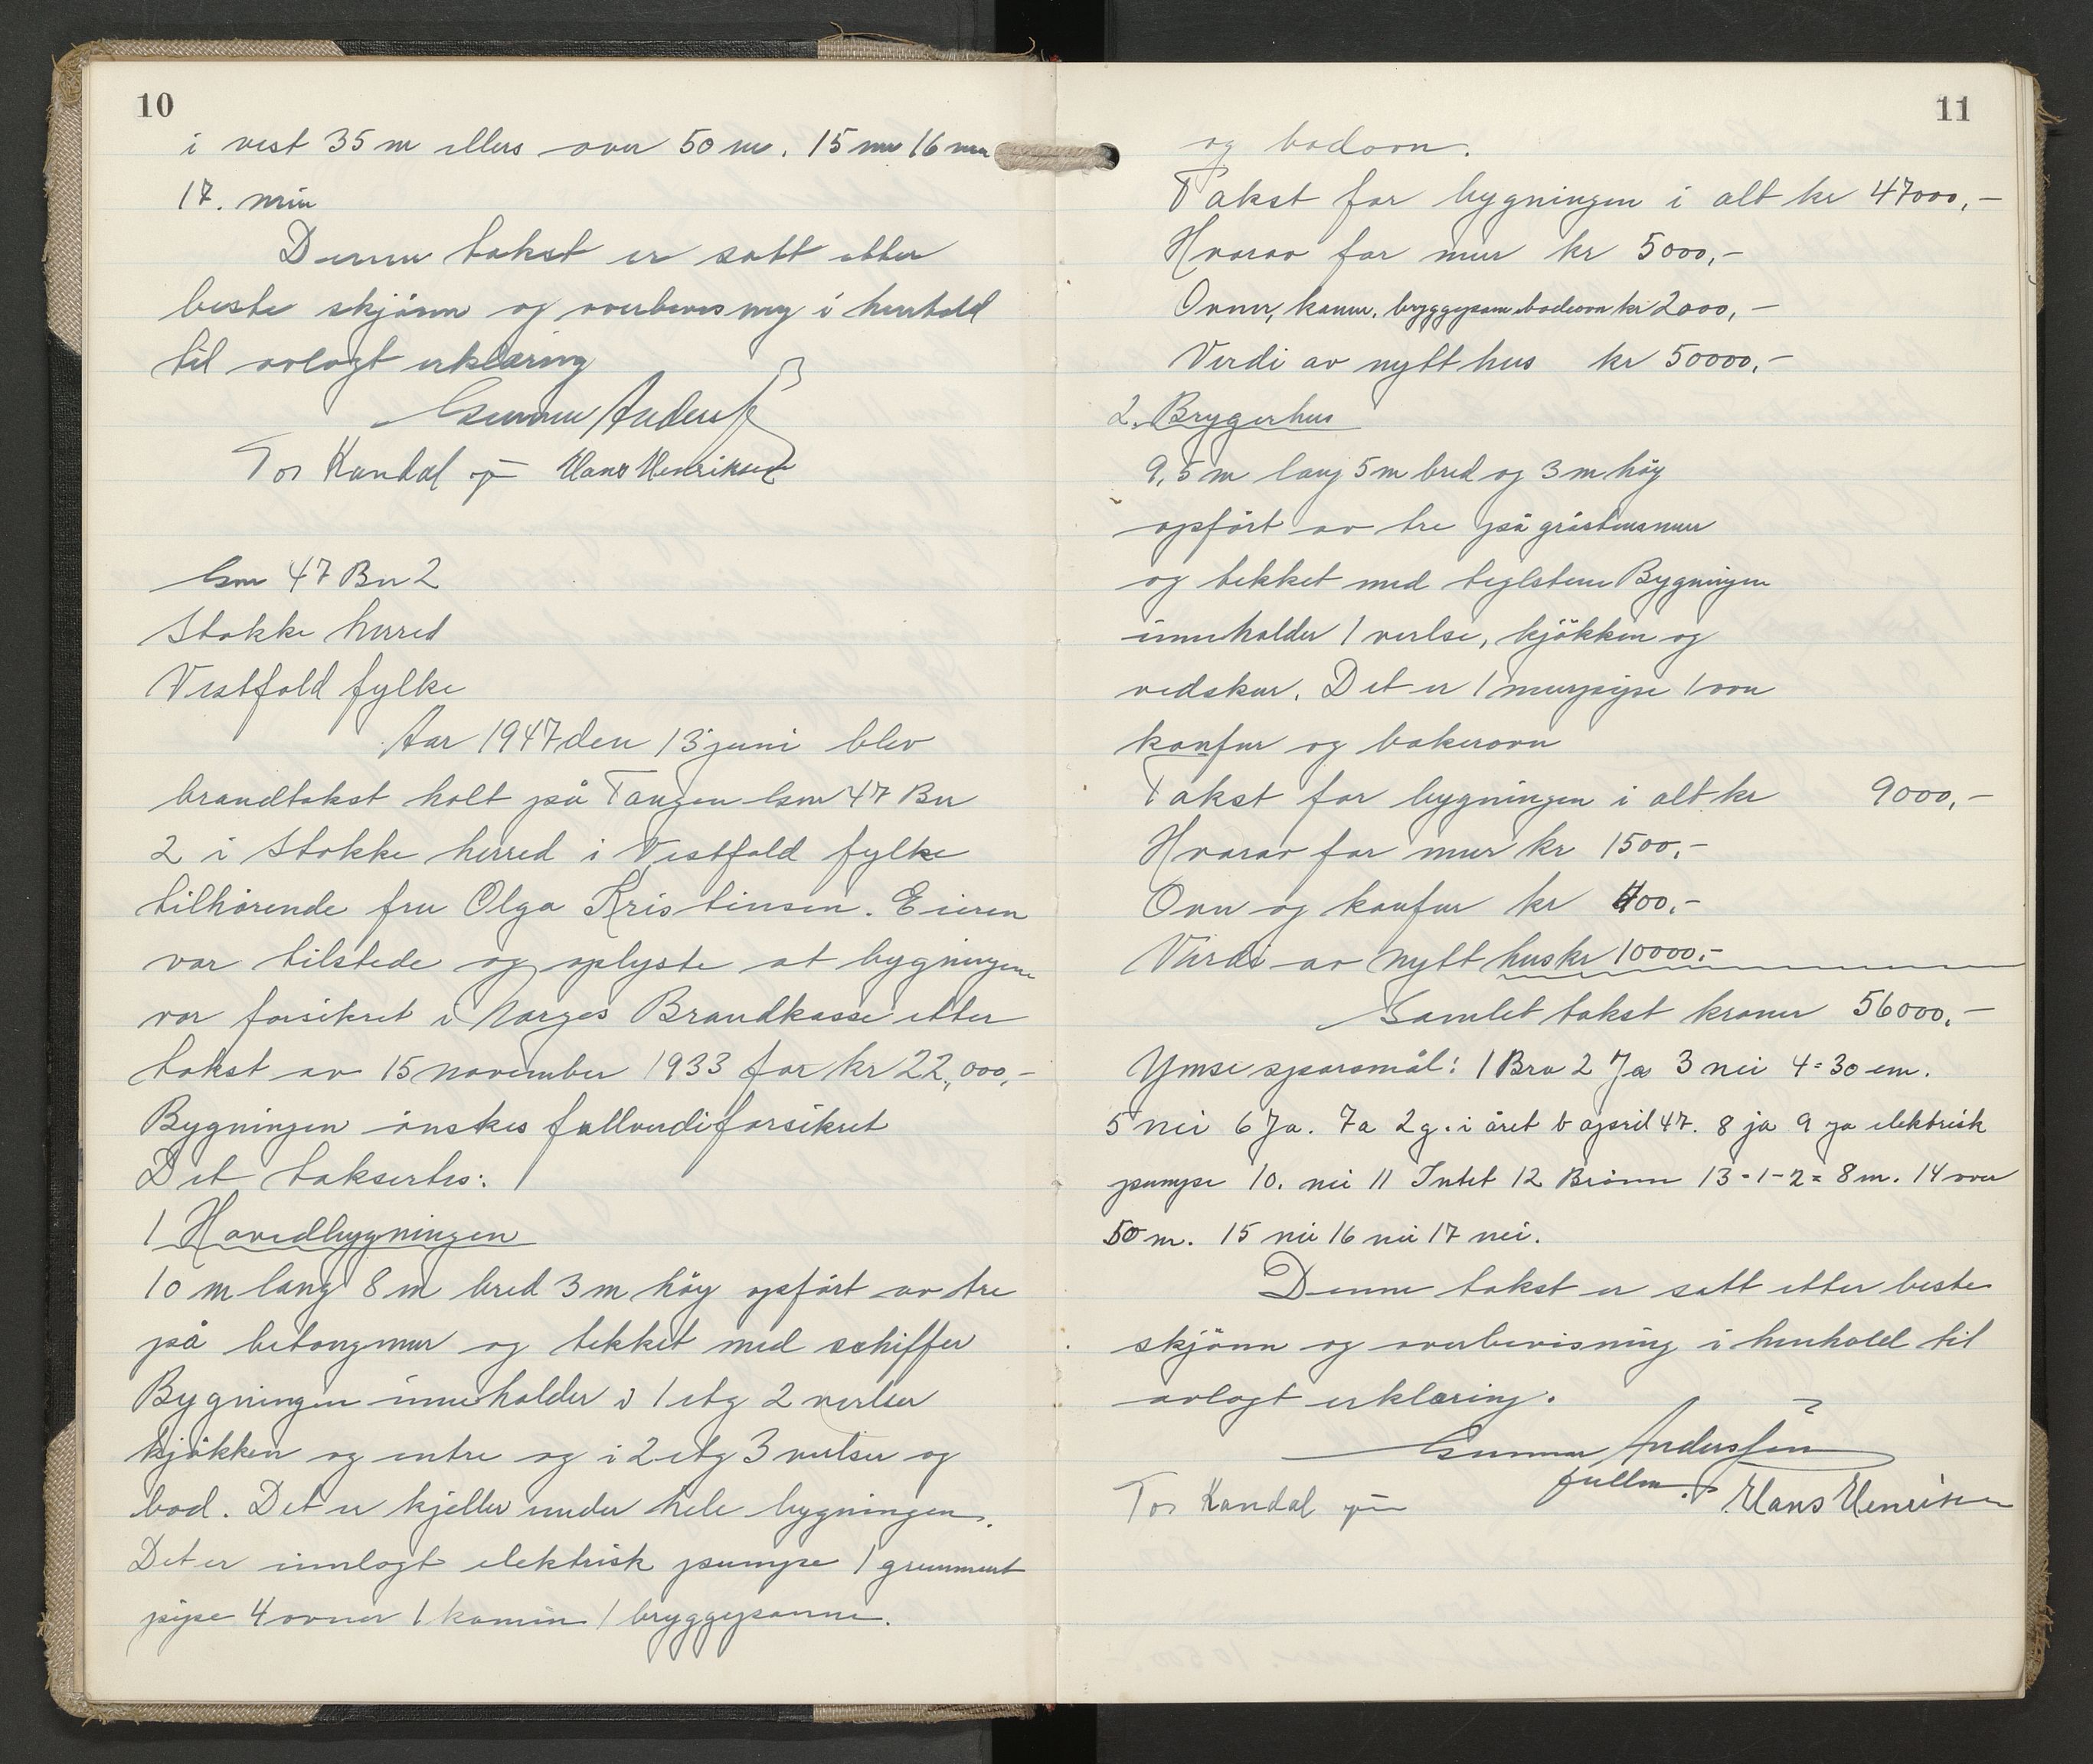 10
i vest 35 m ellers over 50 m. 15 nei 16 nei
17. nei
Denne takst er satt etter
beste skjönn og overbevisning i henhold
til avlagt erklæring
Gunnar Anderssen
Tor Kandal Hans Henriksen
Gnr 47 Bn 2
Stokke herred
Vestfold fylke
Aar 1947 den 13 juni blev
brandtakst holt på Tangen Gnr 47 Bn
2 i Stokke herred i Vestfold fylke
tilhörende fru Olga Kristinsen. Eieren
var tilstede og oplyste at bygningene
var forsikret i Norges Brandkasse etter
takst av 15 november 1933 for kr 22,000,-
Bygningen önskes fullverdiforsikret
Det taksertes:
1 Hovedbygningen
10 m lang 8 m bred 3 m höy opfört av tre
på betongmur og tekket med schiffer
Bygningen inneholder i 1 etg 2 verlser
kjökken og entre og i 2 etg 3 verlser og
bod. Det er kjeller under hele bygningen.
Det er innlagt elektrisk pumpe 1 grunnmurt
pipe 4 ovner 1 kamin 1 bryggepanne.
11
og badovn.
Takst for bygningen i alt kr 47000,-
Hvorav for mur kr 5000,-
Ovner, kamin, bryggepanne badeovn kr 2000,-
Verdi av nytt hus kr 50000,-
2. Brygerhus
9,5 m lang 5 m bred og 3 m höy
opfört av tre på gråstensmur
og tekket med teglstene Bygningen
inneholder 1 verlse, kjökken og
vedskur. Det er 1 murpipe 1 ovn
komfur og bakerovn
Takst for bygningen i alt kr 9000,-
Hvorav for mur kr 1500,-
Ovn og komfur kr 400,-
Værdi av nytt hus kr 10000,-
Samlet takst kroner 56000,-
Ymse spørsmål: 1 Bra 2 Ja 3 nei 4 = 30 cm.
5 nei 6 Ja. 7a 2 g. i året b april 47. 8 ja 9 ja elektrisk
pumpe 10. nei 11 Intet 12 Brönn 13 - 1 - 2 = 8 m. 14 over
50 m. 15 nei 16 nei 17 nei.
Denne takst er satt etter beste
skjönn og overbevisning i henhold til
avlagt erklæring.
Gunnar Anderssen
fullm.
Tor Kandal Hans Henriksen